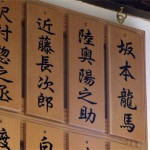 坂本龍馬
陸奥陽之助
近藤長次郎
沢村惣之丞